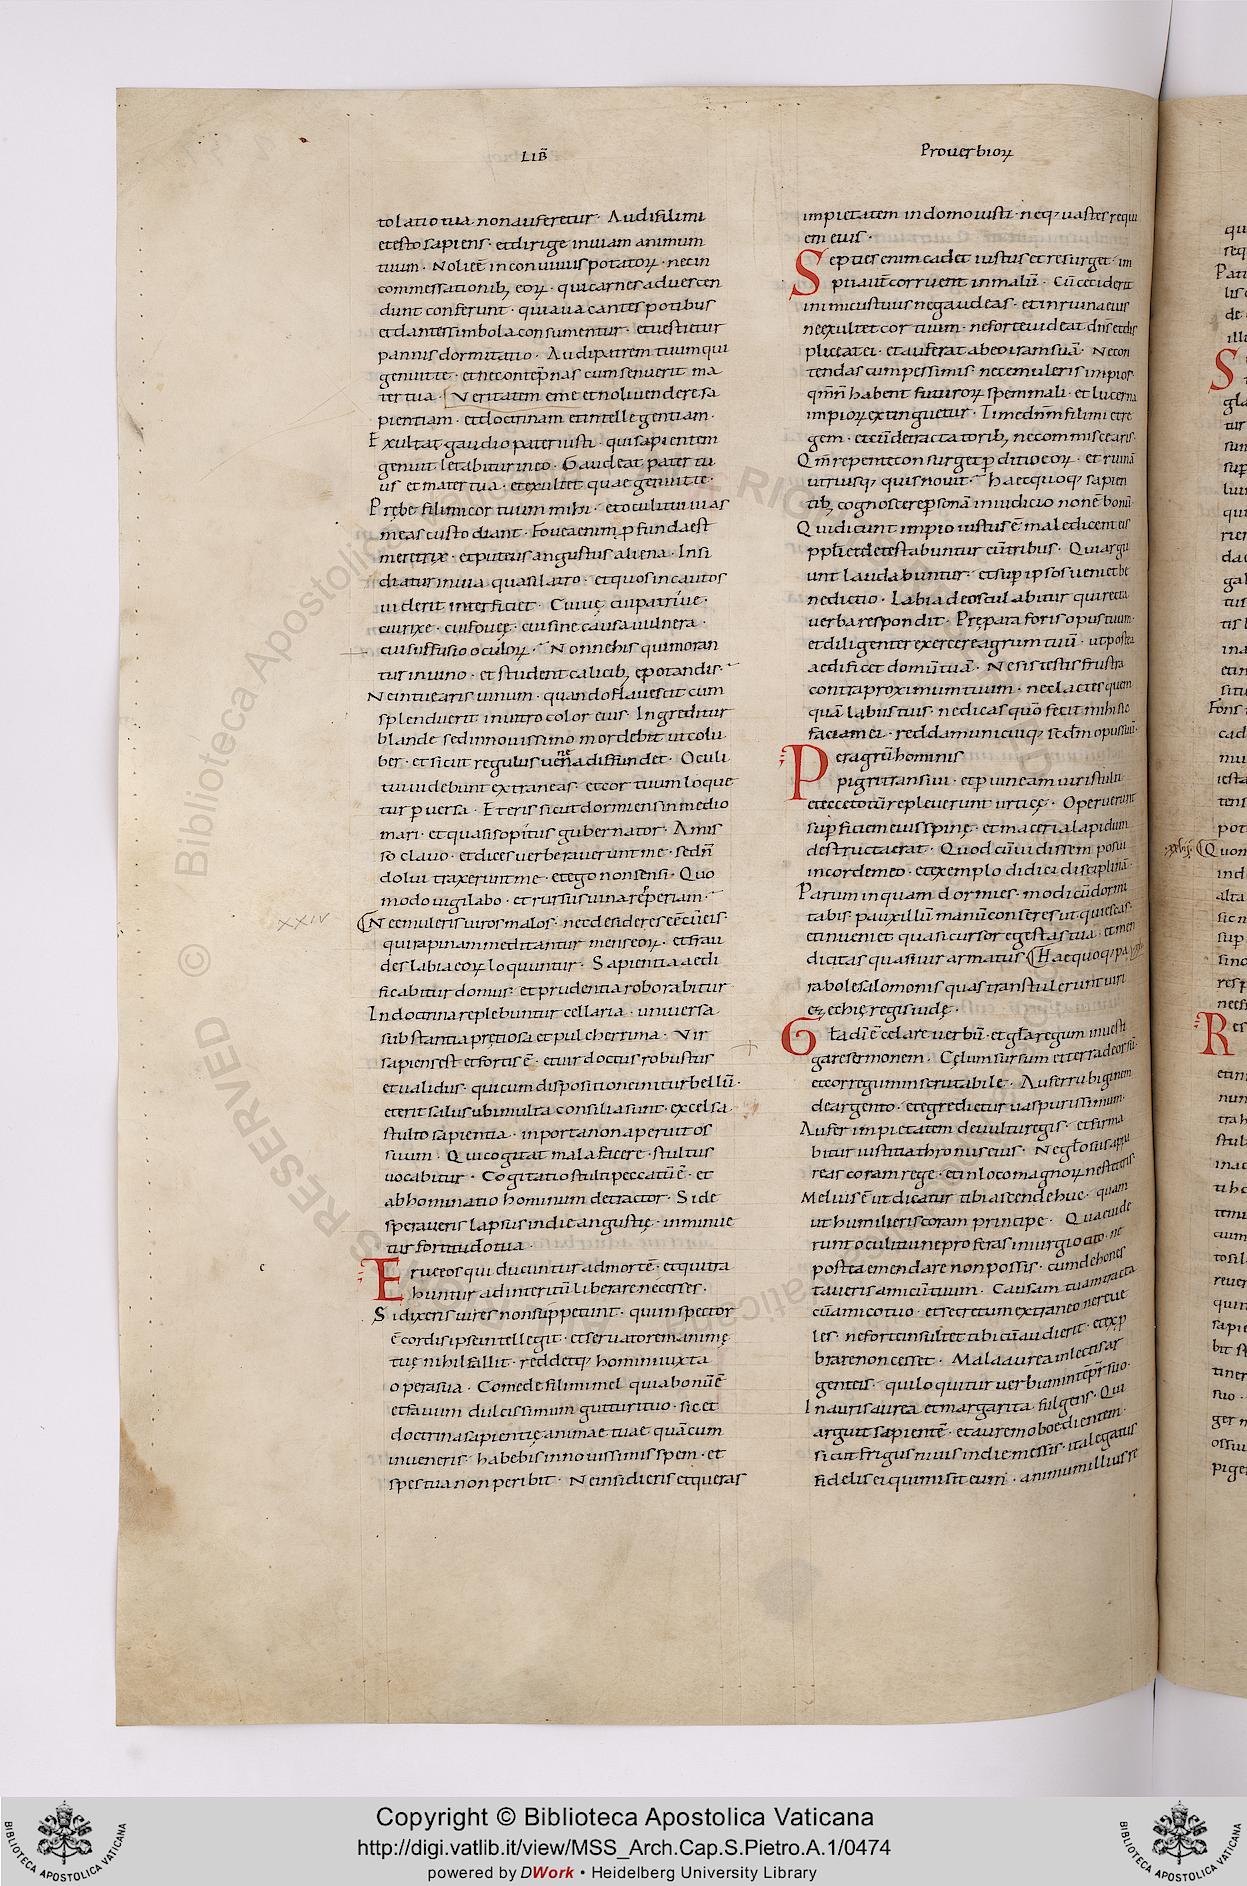 LIB̄
Proverbioꝝ
tolatio tua non auferetur · Audi fili mi
et esto sapiens · et dirige in viam animum
tuum · Noli eē in conviviis potatoꝝ · nec in
commessationib; eoꝝ · qui carnes ad vescen
dunt conferunt · quia vacantes potibus
et dantes simbola consumentur · et vestietur
pannis dormitatio · Audi patrem tuum qui
genuit te · et ne contēpnas cum senuerit ma
ter tua · Veritatem eme et noli vendere sa
pientiam · et doctrinam et intellegentiam ·
Exultat gaudio pater iusti · qui sapientem
genuit letabitur in eo · Gaudeat pater tu
us et mater tua · et exultet quae genuit te ·
Prębe fili mi cor tuum mihi · et oculi tui vias
meas custodiant · Fovea enim ꝓfunda est
meretrix · et puteus angustus aliena · Insi
diatur in via quasi latro · et quos incautos
viderit interficiet · Cui vę cui patri vę ·
cui rixe · cui fovęę · cui sine causa vulnera ·
cui suffusio oculoꝝ · Nonne his qui moran
tur in vino · et student calicib; epotandis ·
Ne intuearis vinum · quando flavescit cum
splenduerit in vitro color eius · Ingreditur
blande sed in novissimo mordebit ut colu
ber · et sicut regulus venena diffundet · Oculi
tui videbunt extraneas · et cor tuum loque
tur ꝑversa · Et eris sicut dormiens in medio
mari · et quasi sopitus gubernator · Amis
so clavo · et dices verberaverunt me · sed n̄
dolui traxerunt me · et ego non sensi · Quo
modo vigilabo · et rursus vina repperiam ·
XXIV
Ne emuleris viros malos · nec desideres eē cū eis ·
qui rapinam meditantur mens eoꝝ · et frau
des labia eoꝝ loquuntur · Sapientia aedi
ficabitur domus · et prudentia roborabitur
In doctrina replebuntur cellaria · universa
substantia pretiosa et pulcherrima · Vir
sapiens est et fortis ē · et vir doctus robustus
et validus · qui cum dispositione initur bellū ·
et erit salus ubi multa consilia sunt · excelsa
stulto sapientia · in porta non aperuit os
suum · Qui cogitat mala facere · stultus
vocabitur · Cogitatio stulti peccatū ē · et
abhominatio hominum detractor · Si de
speraveris lapsus in die angustię · inminue
tur fortitudo tua ·
Erue eos qui ducuntur ad mortē · et qui tra
huntur ad interitū liberare ne cesses ·
Si dixeris vires non suppetunt · qui inspector
ē cordis ipse intellegit · et servatorem animę
tuę nihil fallit · reddetq; homini iuxta
opera sua · Comede fili mi mel quia bonū ē
et favum dulcissimum gutturi tuo · sic et
doctrina sapientię animae tuae quā cum
inveneris · habebis in novissimis spem · et
spes tua non peribit · Ne insidieris et queras
impietatem in domo iusti · neq; vastes requi
em eius ·
Septies enim cadet iustus et resurget · im
pii autē corruent in malū · Cū ceciderit
inimicus tuus ne gaudeas · et in ruina eius
ne exultet cor tuum · ne forte videat dn̄s et dis
pliceat ei · et auferat ab eo iram suā · Ne con
tendas cum pessimis · nec emuleris impios
qm̄ n̄ habent futuroꝝ spem mali · et lucerna
impioꝝ extinguetur · Time dn̄m fili mi et re
gem · et cū detractatorib; ne commiscearis ·
Qm̄ repente consurget ꝑditio eoꝝ · et ruinā
utriusq; quis novit · Haec quoq; sapien
tib; cognoscere ꝑsonā in iudicio non ē bonū
Qui dicunt impio iustus ē maledicent eis
ppl̄i et detestabuntur eū tribus · Qui argu
unt laudabuntur · et suꝑ ipsos veniet be
nedictio · Labia deosculabitur qui recta
verba respondit · Prępara foris opus tuum
et diligenter exerce agrum tuū · ut postea
aedifices domū tuā · Ne sis testis frustra
contra proximum tuum · nec lactes quem
quā labiis tuis · ne dicas quō fecit mihi sic
faciam ei · reddam unicuiq; scdm̄ opus suū
Per agrū hominis
pigri transivi · et ꝑ vineam viri stulti
et ecce totū repleverunt urticę · Operuerunt
suꝑficiem eius spinę · et maceria lapidum
destructa erat · Quod cū vidissem posui
in corde meo · et exemplo didici disciplinā
Parum inquam dormies · modicū dormi
tabis · pauxillū manū conseres ut quiescas
et inveniet quasi cursor egestas tua · et men
dicitas quasi vir armatus · Hae quoq; pa
rabole salomonis quas transtulerunt viri
ezechię regis iudę ·
Glā dī ē celare verbū · et glā regum investi
gare sermonem · Cęlum sursum et terra deorsū
et cor regum inscrutabile · Aufer rubiginem
de argento · et egredietur vas purissimum ·
Aufer impietatem de vultu regis · et firma
bitur iustitia thronus eius · Ne glōsus appa
reas coram rege · et in loco magnoꝝ ne steteris
Melius ē ut dicatur tibi ascende huc · quam
ut humilieris coram principe · Quae vide
runt oculi tui ne proferas in iurgio cito · ne
postea emendare non possis · cum dehones
taveris amicū tuum · Causam tuam tracta
cū amico tuo · et secretum extraneo ne reve
les · ne forte insultet tibi cū audierit · et exp
brare non cesset · Mala aurea in lectis ar
genteis · qui loquitur verbum in tēpr̄ suo ·
Inauris aurea et margarita fulgens · Qui
arguit sapientē · et aurem oboedientem ·
sicut frigus nivis in die messis · ita legatus
fidelis ei qui misit eum · animum illius re